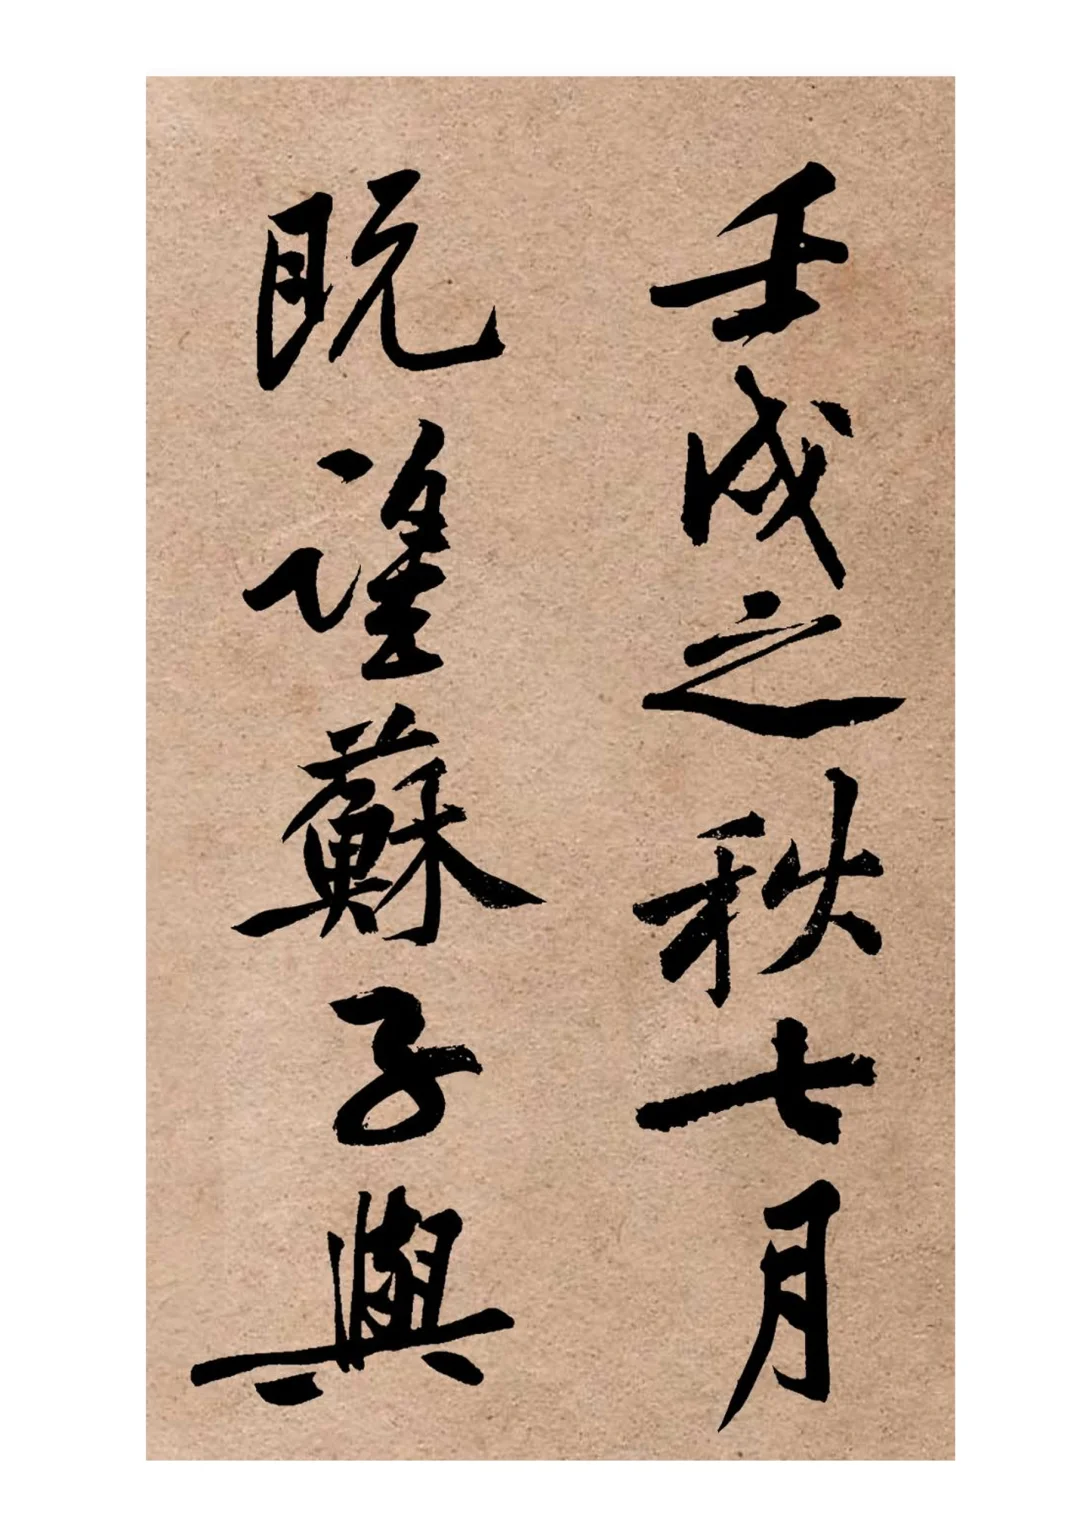 壬戌之秋七月
既望蘇子與